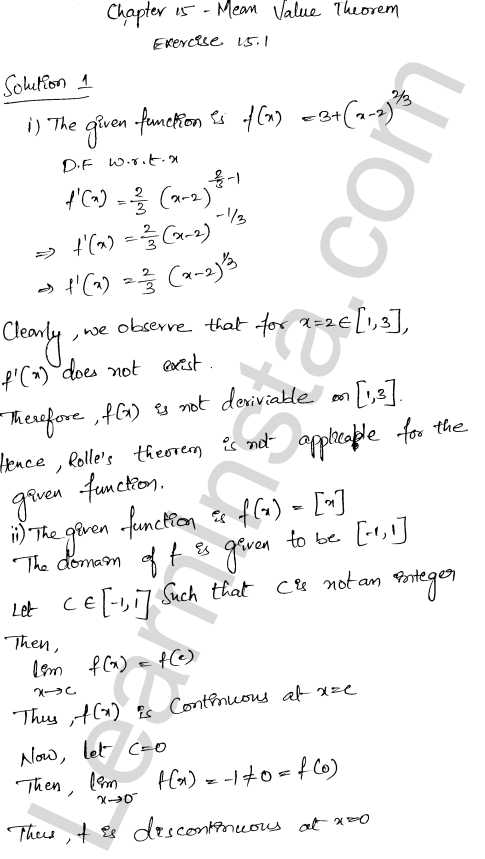 Chapter 15 - Mean Value Theorem
Exercise 15.1
Solution 1
i) The given function is f(x) = 3+(x-2)^2/3
D.F w.r.t.x
f'(x) = 2/3 (x-2)^2/3-1
⇒ f'(x) = 2/3 (x-2)^-1/3
⇒ f'(x) = 2/3 (x-2)^1/3
Clearly, we observe that for x=2∈[1,3],
f'(x) does not exist.
Therefore, f(x) is not deriviable on [1,3].
Hence, Rolle's theorem is not applicable for the
given function.
ii) The given function is f(x) = [x]
The domain of f is given to be [-1,1]
Let C∈[-1,1] Such that C is not an integer
Then,
lim x→c f(x) = f(c)
Thus, f(x) is Continuous at x=c
Now, let C=0
Then, lim x→0⁻ f(x) = -1≠0 = f(0)
Thus, f is discontinuous at x=0
LearnInsta.com